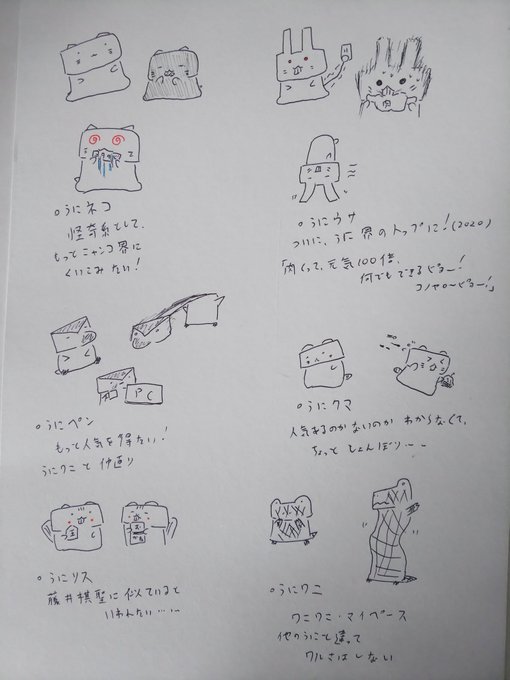 うにネコ
怪奇系として、
もっとニャンコ界に
くいこみたい!
うにウサ
ついに、うに界のトップに!(2020)
「肉くって、元気100倍、
何でもできるビョー!
コノヤロービョー!」
肉
うにペン
もっと人気を得たい!
うにワニと仲直り
PC
うにクマ
人気あるのかないのかわからなくて、
ちょっとしょんぼり……
うにリス
藤井棋聖に似ていると
いわれたい……
うにワニ
ワニワニ・マイペース
他のうにと違って
ワルさはしない